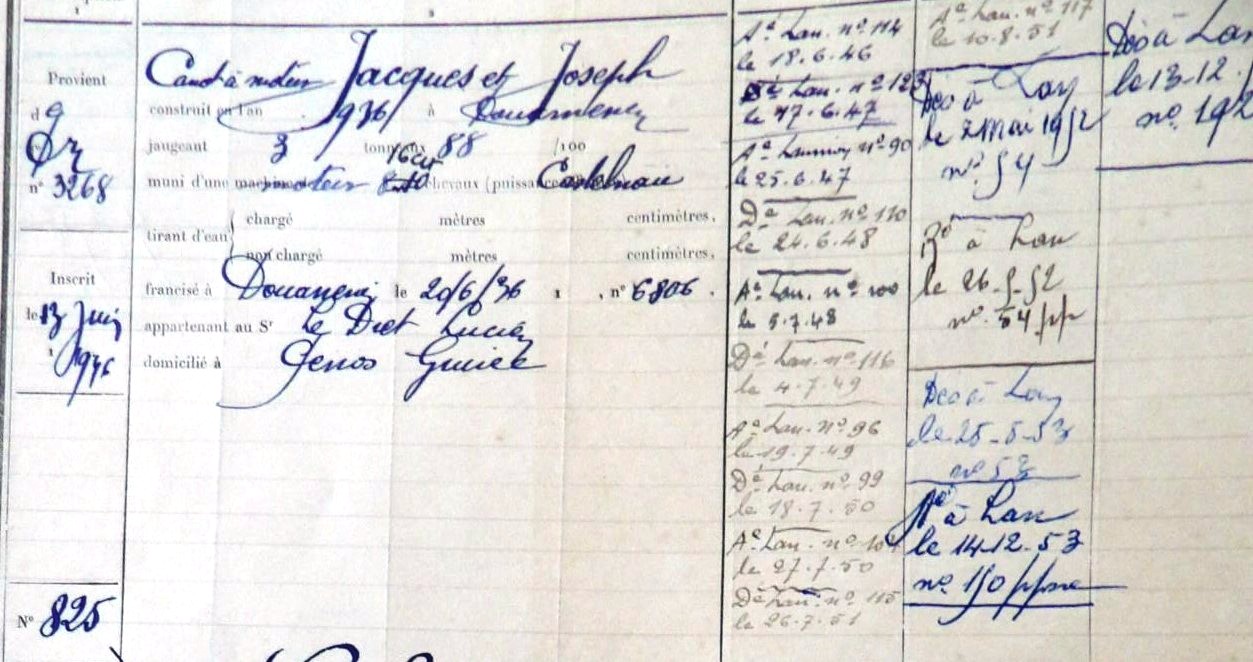 Provient
de
Qr
n° 3268
Inscrit
le 13 Juin
1946
N° 825
Canot à moteur Jacques et Joseph
construit en l'an 1936 à Douarnenez
jaugeant 3 tonneaux 88 /100
muni d'une machine moteur 16 cv chevaux (puissance Castelnau
tirant d'eau
chargé mètres centimètres,
non chargé mètres centimètres,
francisé à Douarnenez le 20/6/36, n° 6806.
appartenant au Sr Le Lucien
domicilié à
Aé Lan. n° 114
le 18.6.46
Dé Lan. n° 123
le 17.6.47
Aé Lannion n° 90
le 25.6.47
Dé Lan. n° 110
le 24.6.48
Aé Lan. n° 100
le 5.7.48
Dé Lan. n° 116
le 4.7.49
Aé Lan. n° 96
le 19.7.49
Dé Lan. n° 99
le 18.7.50
Aé Lan. n° 101
le 27.7.50
Dé Lan. n° 115
le 26.7.51
Aé Lan. n° 117
le 10.8.51
à Lan
le 2 Mai 1952
n° 54
à Lan
le 26.5.52
n° 54
à Lan
le 25-5-53
n° 53
à Lan
le 14-12.53
n° 150
à Lan
le 13-12
n° 192